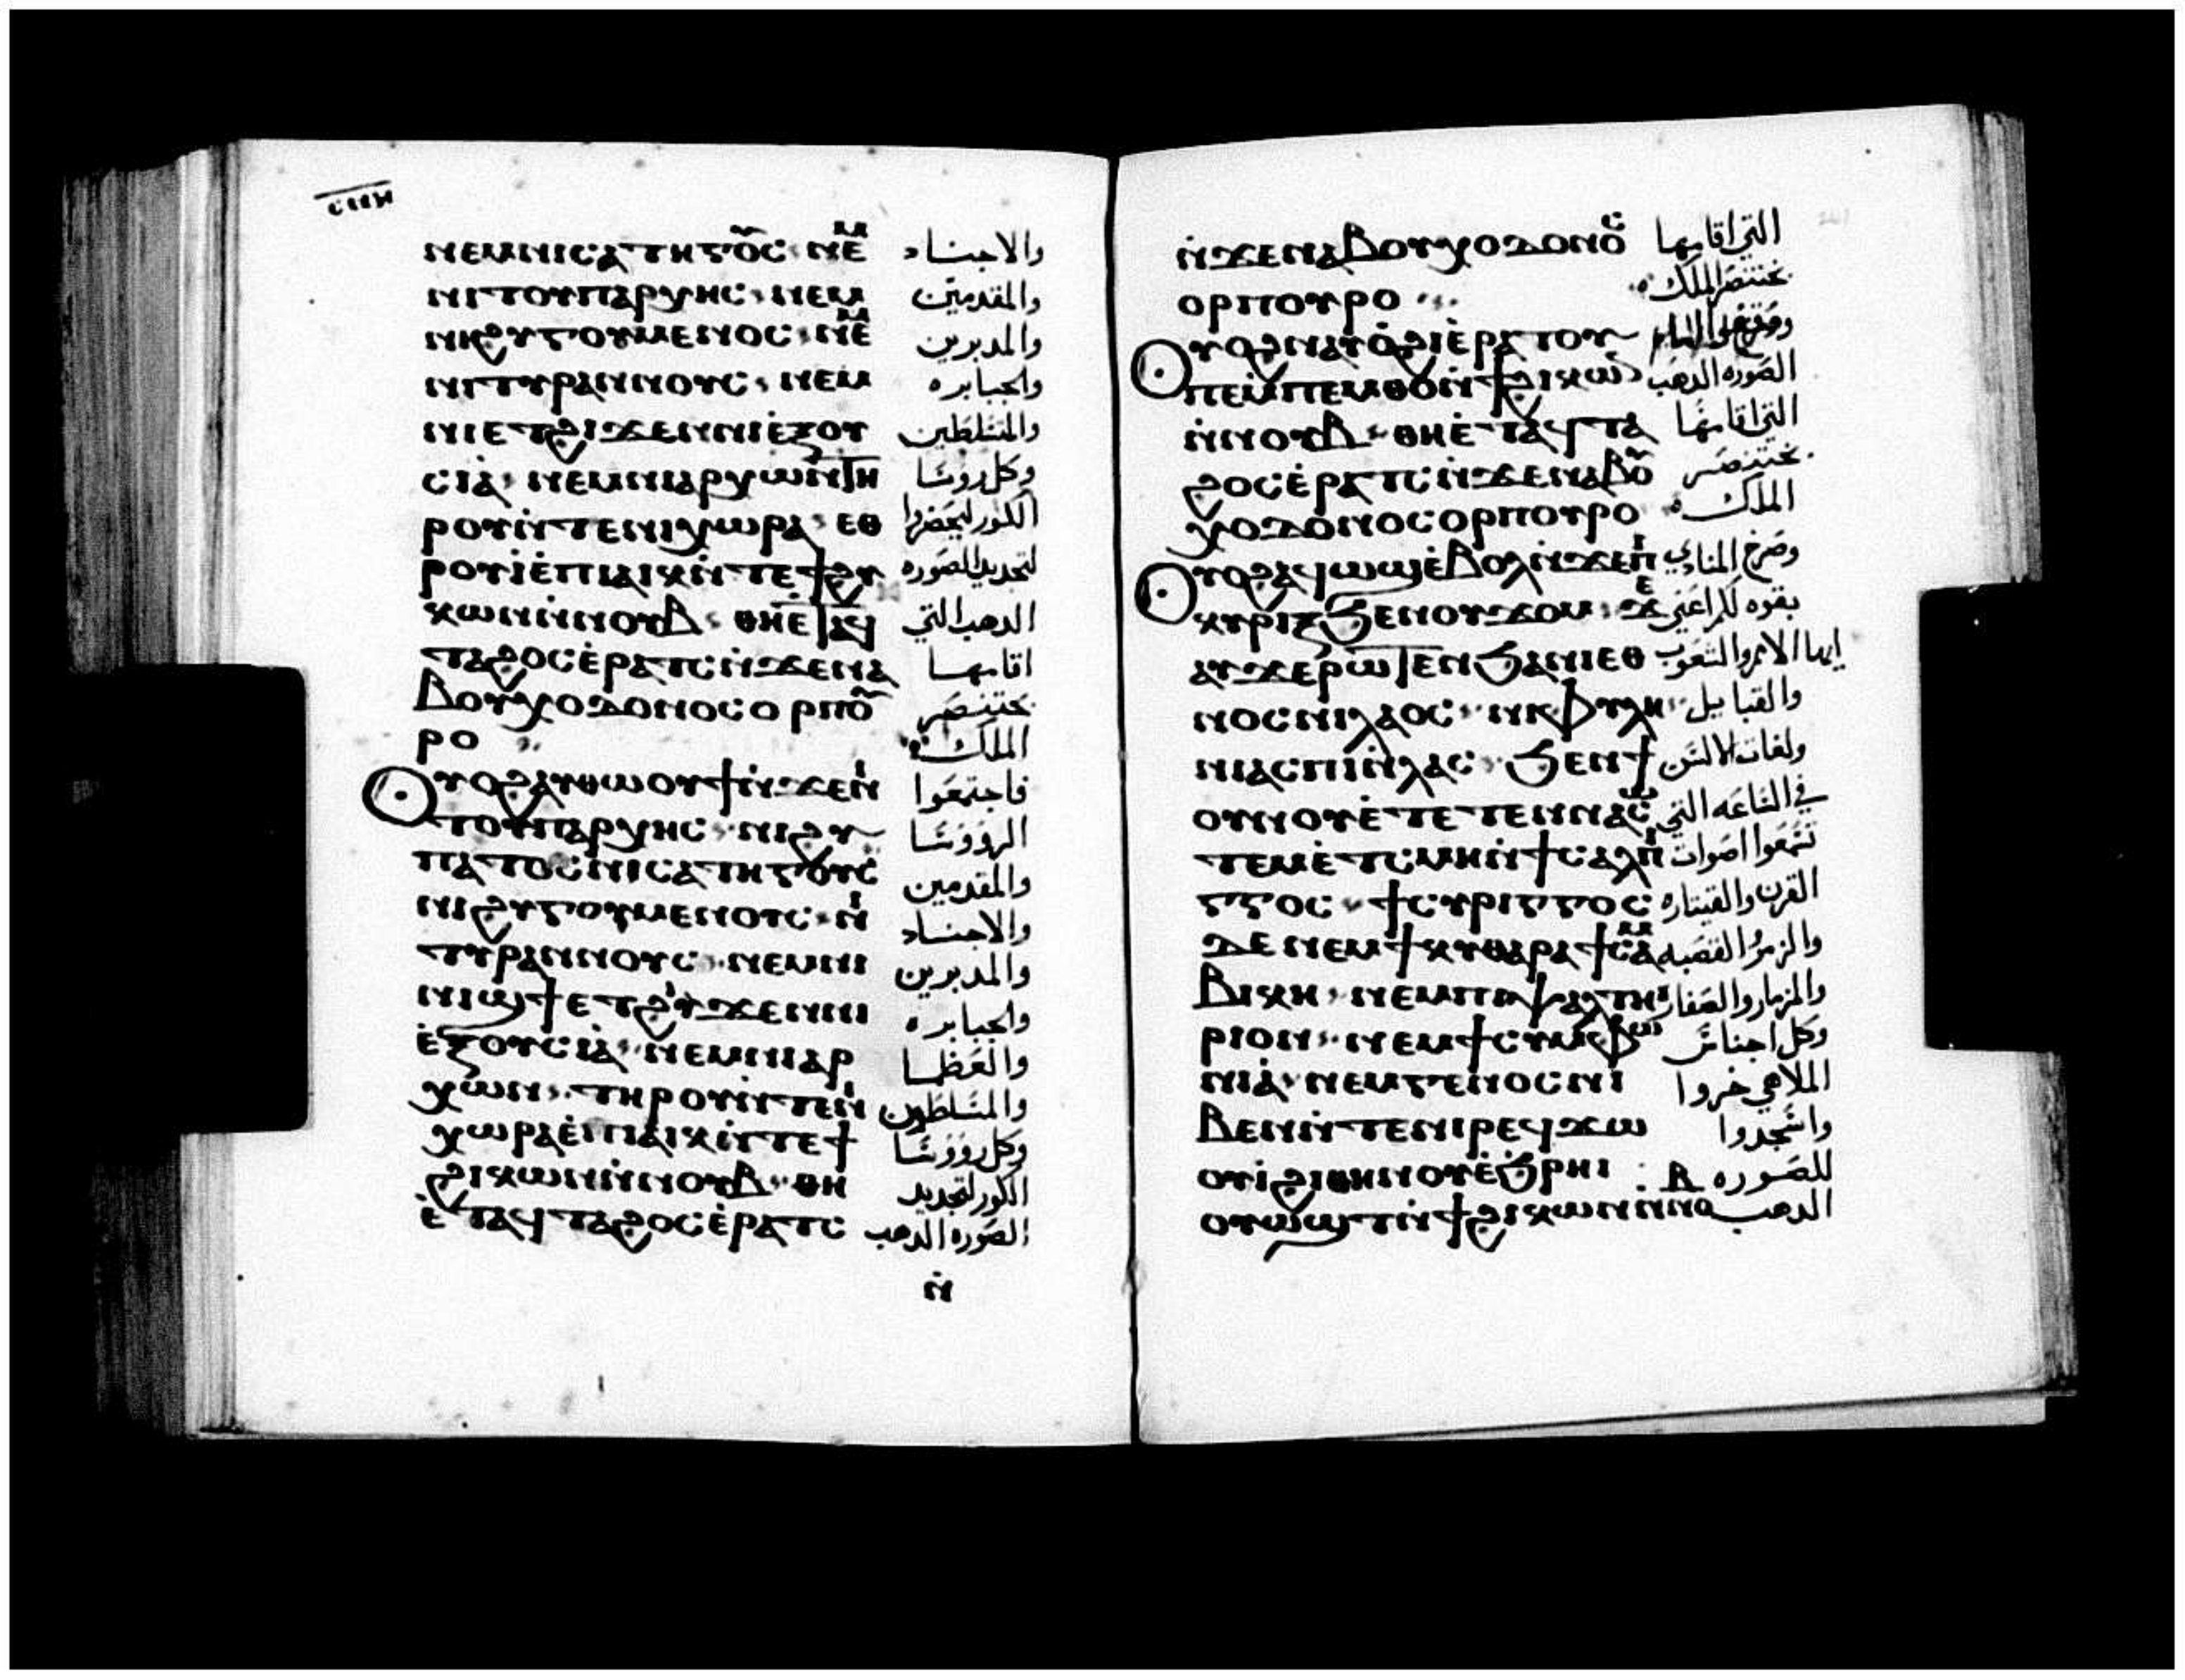 ⲥⲡⲏ
ⲛⲉⲙⲛⲓⲥⲁⲧⲏⲅⲟⲩⲥ ⲛⲉⲙ والاجناد
ⲛⲓⲧⲟⲩⲡⲁⲣⲭⲏⲥ ⲛⲉⲙ والمقدمين
ⲛⲓϩⲩⲅⲟⲩⲙⲉⲛⲟⲥ ⲛⲉⲙ والمدبرين
ⲛⲓⲧⲩⲣⲁⲛⲛⲟⲩⲥ ⲛⲉⲙ والجبابره
ⲛⲓⲉⲧϩⲓϫⲉⲛⲛⲓⲉ̀ⲝⲟⲩ والمتسلطين
ⲥⲓⲁ̀ ⲛⲉⲙⲛⲓⲁⲣⲭⲱⲛⲧⲏ وكل روسا
ⲣⲟⲩⲛ̀ⲧⲉⲛⲓⲭⲱⲣⲁ ⲉⲑ الكور ليحضروا
ⲣⲟⲩⲓ̀ⲉ̀ⲡⲓⲁⲓⲕⲛ̀ⲧⲉϯϩⲩ لتجديد الصوره
ⲕⲱⲛⲛ̀ⲛⲟⲩⲃ ⲑⲏⲉⲧⲁϥ الدهب التي
ⲧⲁϩⲟⲥⲉ̀ⲣⲁⲧⲥⲛ̀ϫⲉⲛⲁ اقامها
ⲃⲟⲩⲭⲟⲇⲟⲛⲟⲥⲟⲣⲡⲟⲩ بختنصر
ⲣⲟ الملك
ⲟⲩⲟϩⲁⲩⲑⲱⲟⲩϯⲛ̀ϫⲉⲛⲓ فاجتمعوا
ⲧⲟⲩⲡⲁⲣⲭⲏⲥ ⲛⲓϩⲩ الرووسا
ⲡⲁⲧⲟⲥⲛⲓⲥⲁⲧⲏⲅⲟⲩⲥ والمقدمين
ⲛⲓϩⲩⲅⲟⲩⲙⲉⲛⲟⲩⲥ ⲛⲓ والاجناد
ⲧⲩⲣⲁⲛⲛⲟⲩⲥ ⲛⲉⲙⲛⲓ والمدبرين
ⲛⲓϣϯⲉⲧϩⲓϫⲉⲛⲛⲓ والجبابره
ⲉ̀ⲝⲟⲩⲥⲓⲁ̀ ⲛⲉⲙⲛⲓⲁⲣ والعظما
ⲭⲱⲛ ⲧⲏⲣⲟⲩⲛ̀ⲧⲉⲛⲓ والمتسلطين
ⲭⲱⲣⲁⲉ̀ⲡⲓⲁⲓⲕⲛ̀ⲧⲉϯ وكل رووسا
ϩⲓⲕⲱⲛⲛ̀ⲛⲟⲩⲃ ⲑⲏ الكور لتجديد
ⲉ̀ⲧⲁϥⲧⲁϩⲟⲥⲉ̀ⲣⲁⲧⲥ الصوره الدهب
ⲛ̀
ⲛ̀ϫⲉⲛⲁⲃⲟⲩⲭⲟⲇⲟⲛⲟⲥ التي اقامها
ⲟⲣⲡⲟⲩⲣⲟ بختنصر الملك
ⲟⲩⲟϩⲛⲁⲩⲟ̀ϩⲓⲉ̀ⲣⲁⲧⲟⲩ
ⲡⲉⲙ̀ⲡⲉⲙⲑⲟⲛ̀ϯϩⲓⲕⲱ الصوره الدهب
ⲛ̀ⲛⲟⲩⲃ ⲑⲏⲉ̀ⲧⲁϥⲧⲁ التي اقامها
ϩⲟⲥⲉ̀ⲣⲁⲧⲥⲛ̀ϫⲉⲛⲁⲃⲟⲩ بختنصر
ⲭⲟⲇⲟⲛⲟⲥⲟⲣⲡⲟⲩⲣⲟ الملك
ⲟⲩⲟϩⲁϥⲱϣⲉ̀ⲃⲟⲗⲛ̀ϫⲉⲡⲓ وصرخ المنادي
ⲕⲩⲣⲓⲝϧⲉⲛⲟⲩϫⲟⲙ ϫⲉ بقوه لكم اعني
ⲁⲩϫⲉⲣⲱⲧⲉⲛϧⲁⲛⲓⲉⲑ ايها الامم والشعوب
ⲛⲟⲥⲛⲓⲗⲁⲟⲥ ⲛⲓⲫⲩⲗⲏ والقبايل
ⲛⲓⲁⲥⲡⲓⲛ̀ⲗⲁⲥ ϧⲉⲛϯ ولغات الالسن
ⲟⲩⲛⲟⲩⲉ̀ⲧⲉⲧⲉⲛⲛⲁⲥⲱ في الساعه التي
ⲧⲉⲙⲉ̀ⲧⲥⲙⲏⲛ̀ϯⲥⲁⲗⲡⲓ تسمعوا اصوات
ⲅⲅⲟⲥ ϯⲥⲩⲣⲓⲅⲅⲟⲥ القرن والقيتاره
ⲇⲉ ⲛⲉⲙϯⲕⲩⲑⲁⲣⲁ ϯⲥⲁⲙ والزمر والقصبه
ⲃⲓⲕⲏ ⲛⲉⲙⲡⲓⲯⲁⲗⲧⲏ والمزمار والصفار
ⲣⲓⲟⲛ ⲛⲉⲙϯⲥⲩⲙⲫⲱ وكل اجناس
ⲛⲓⲁ̀ ⲛⲉⲙⲅⲉⲛⲟⲥⲛⲓ الملاهي خروا
ⲃⲉⲛⲛ̀ⲧⲉⲛⲓⲣⲉϥϫⲱ واسجدوا
ⲟⲩⲓ̀ϩⲓⲑⲏⲛⲟⲩⲉ̀ϧⲣⲏⲓ للصوره
ⲟⲩⲱϣⲧⲛ̀ϯϩⲓⲕⲱⲛⲛ̀ⲛⲟⲩⲃ الدهب